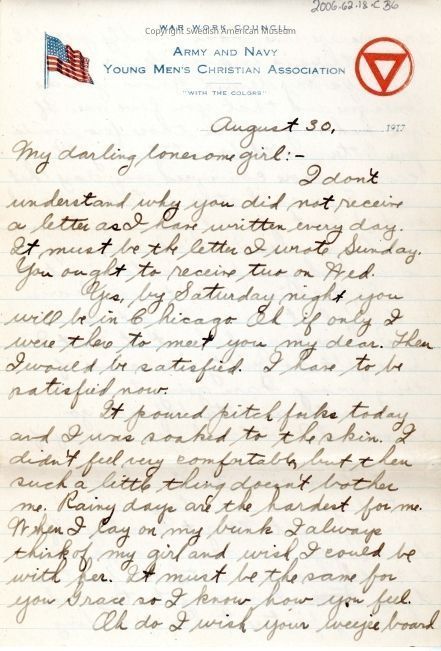 2006-62-18-C B6
WAR WORK COUNCIL
Copyright Swedish American Museum
ARMY AND NAVY
YOUNG MEN'S CHRISTIAN ASSOCIATION
"WITH THE COLORS"
August 30, 1917
My darling lonesome girl:-
I don't
understand why you did not receive
a letter as I have written every day.
It must be the letter I wrote Sunday.
You ought to receive two on Wed.
Yes, by Saturday night you
will be in Chicago. Oh if only I
were there to meet you my dear. Then
I would be satisfied. I have to be
satisfied now.
It poured pitch forks today
and I was soaked to the skin. I
didn't feel very comfortable, but then
such a little thing doesn't bother
me. Rainy days are the hardest for me.
When I lay on my bunk I always
think of my girl and wish I could be
with her. It must be the same for
you Grace so I know how you feel.
Oh do I wish your weejee board